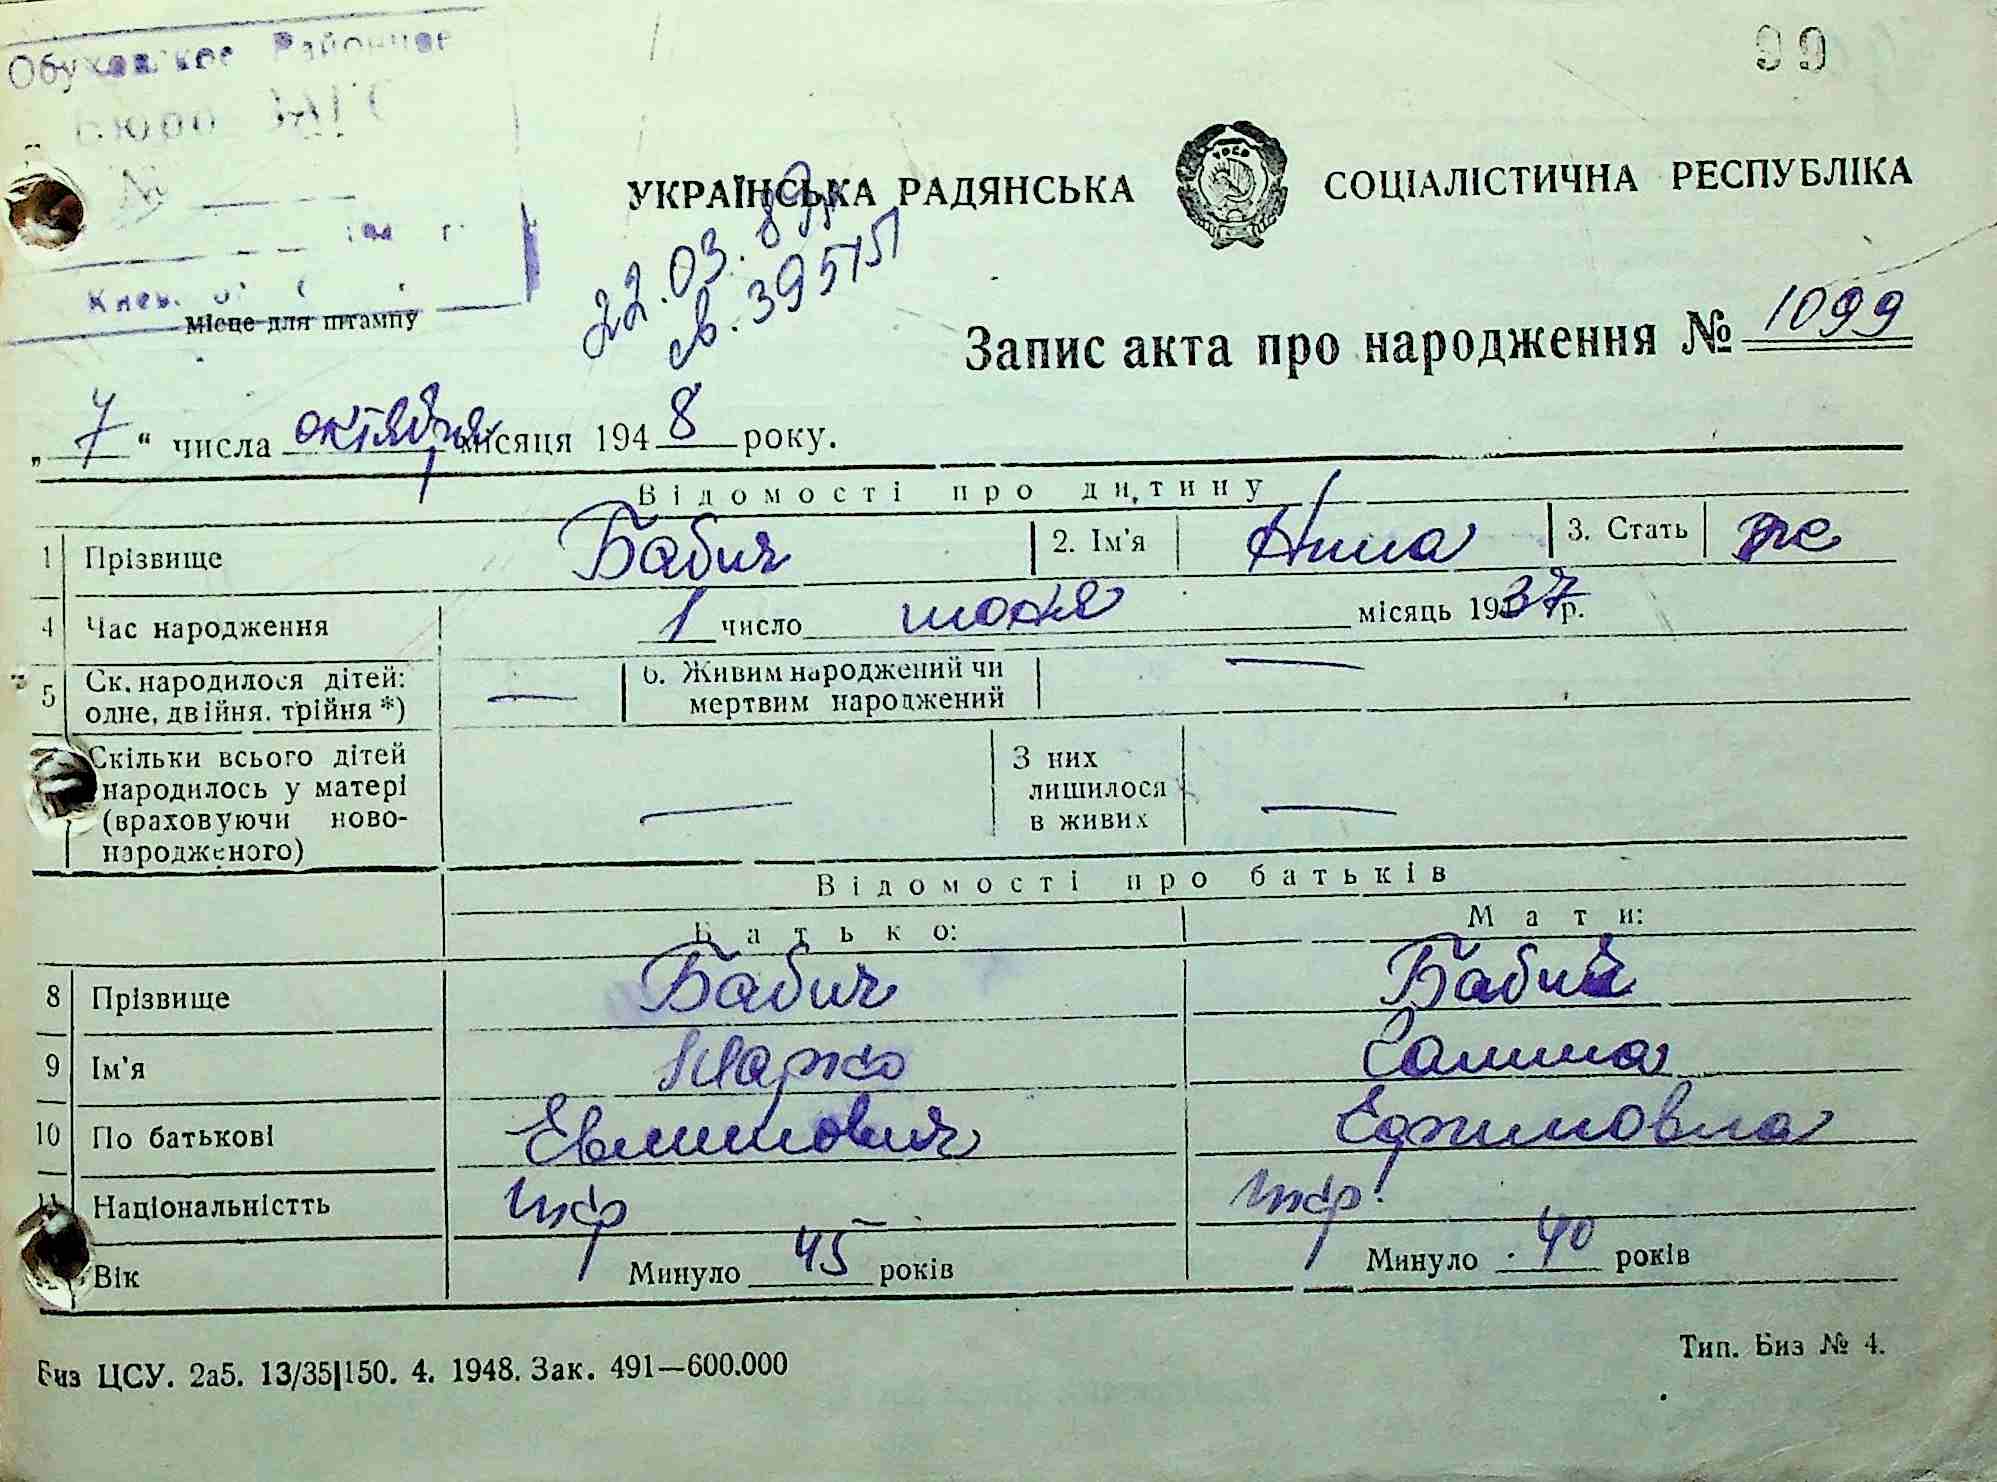 99
Обуховское Районное
Бюро ЗАГС
№
194 г.
Киев.
Місце для штампу
УКРАЇНСЬКА РАДЯНСЬКА СОЦІАЛІСТИЧНА РЕСПУБЛІКА
22.03.89
св. 395151
Запис акта про народження № 1099
„7“ числа октября місяця 1948 року.
Відомості про дитину
1 Прізвище Бабич 2. Ім'я Нина 3. Стать же
4 Час народження 1 число июля місяць 1937 р.
5 Ск. народилося дітей: одне, двійня, трійня *) — 6. Живим народжений чи мертвим народжений —
Скільки всього дітей народилось у матері (враховуючи ново-народженого) — З них лишилося в живих —
Відомості про батьків
Батько: Мати:
8 Прізвище Бабич Бабич
9 Ім'я Марко Галина
10 По батькові Евминович
11 Національністть укр укр.
12 Вік Минуло 45 років Минуло 40 років
Биз ЦСУ. 2а5. 13/35|150. 4. 1948. Зак. 491—600.000
Тип. Биз № 4.